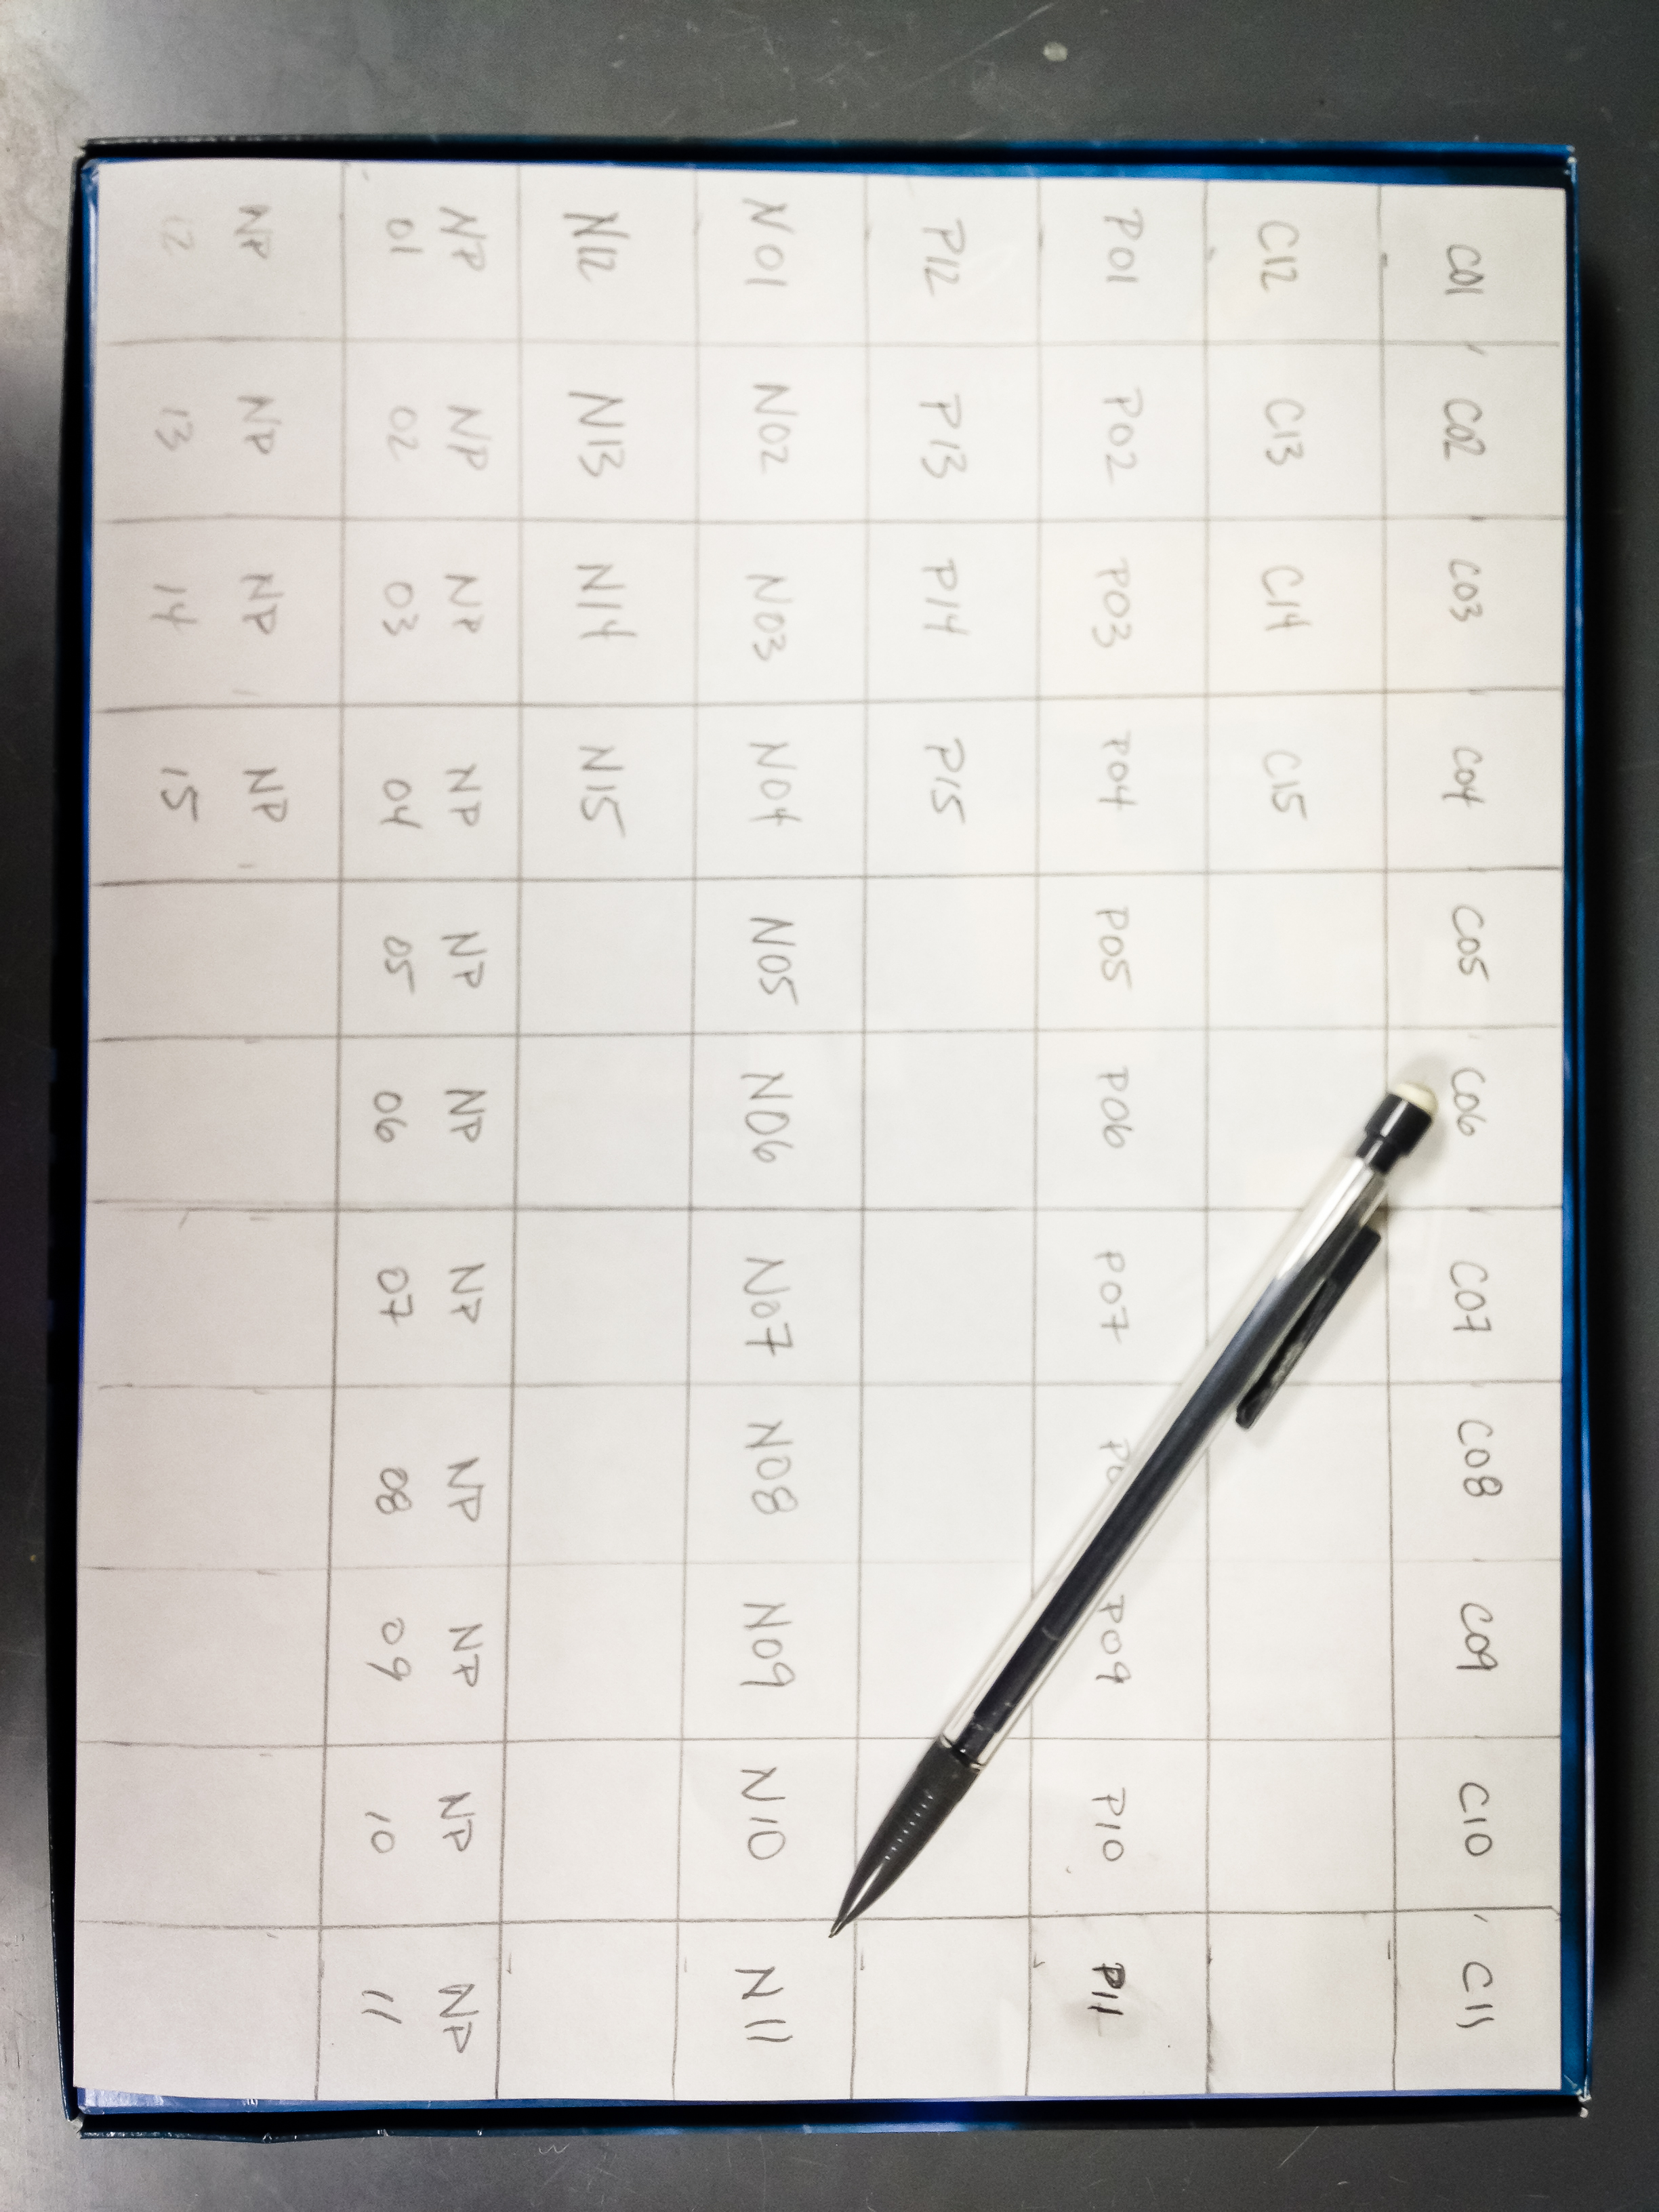 C01 C02 C03 C04 C05 C06 C07 C08 C09 C10 C11
C12 C13 C14 C15
P01 P02 P03 P04 P05 P06 P07 P09 P10 P11
P12 P13 P14 P15
N01 N02 N03 N04 N05 N06 N07 N08 N09 N10 N11
N12 N13 N14 N15
NP NP NP NP NP NP NP NP NP NP NP
01 02 03 04 05 06 07 08 09 10 11
NP NP NP NP
12 13 14 15